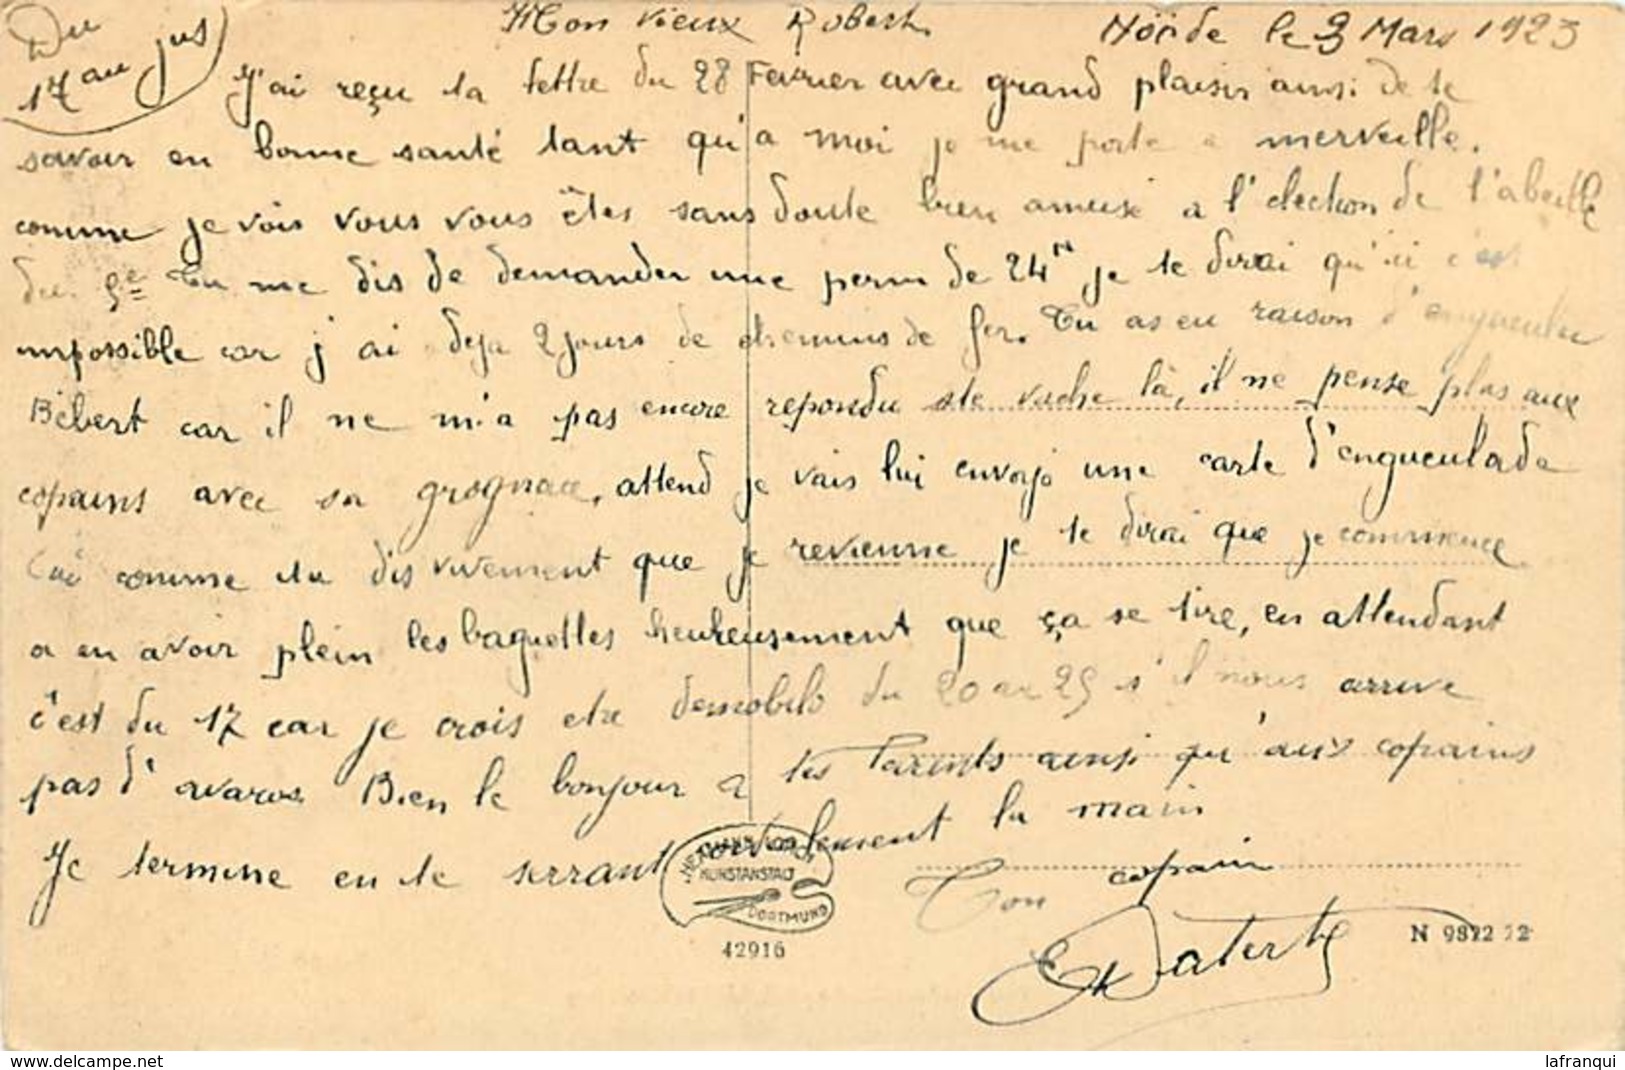 Du
17 au jus
Mon vieux Robert. Hörde le 3 Mars 1923
J'ai reçu ta lettre du 28 Fevrier avec grand plaisir ainsi de te
savoir en bonne santé tant qu'a moi je me porte a merveille.
comme je vois vous vous êtes sans doute bien amusé a l'election de l'abeille
du 5e Tu me dis de demander une perm de 24 H je te dirai qu'ici c'est
impossible car j'ai deja 2 jours de chemins de fer. Tu as eu raison d'engueuler
Bébert car il ne m'a pas encore repondu ste vache là, il ne pense plus aux
copains avec sa grognace, attend je vais lui envoyé une carte d'engueulade
comme tu dis vivement que je revienne je te dirai que je commence
a en avoir plein les baguettes heureusement que ça se tire, en attendant
c'est du 17 car je crois etre demobilo du 20 au 25 s'il nous arrive
pas d'avaros. Bien le bonjour a tes Parents ainsi qu'aux copains
Je termine en te serrant cordialement la main
Ton copain
KUNSTANSTALT
DORTMUND
42916
N 9822 22
lafranqui